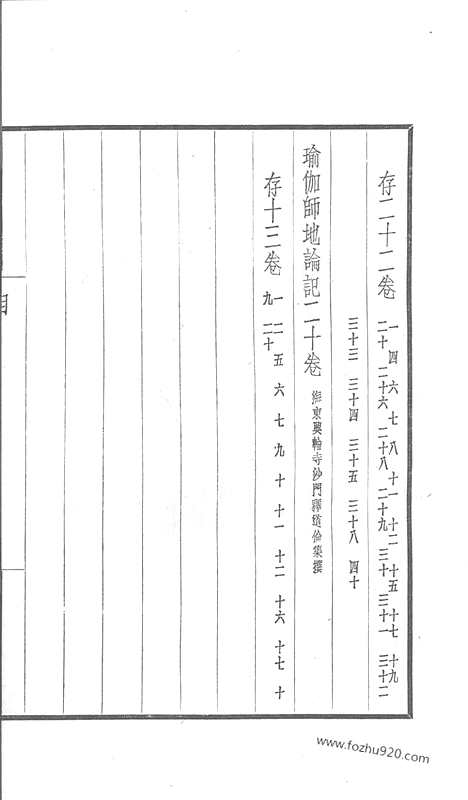 存二十二卷 一 四 六 七 八 十一 十二 十五 十七 十九
二十 二十六 二十八 二十九 三十 三十一 三十二
三十三 三十四 三十五 三十八 四十
瑜伽師地論記二十卷 海東興輪寺沙門釋道倫集撰
存十三卷 一 二 五 六 七 九 十 十一 十二 十六 十七 十
九 二十
www.fozhu920.com